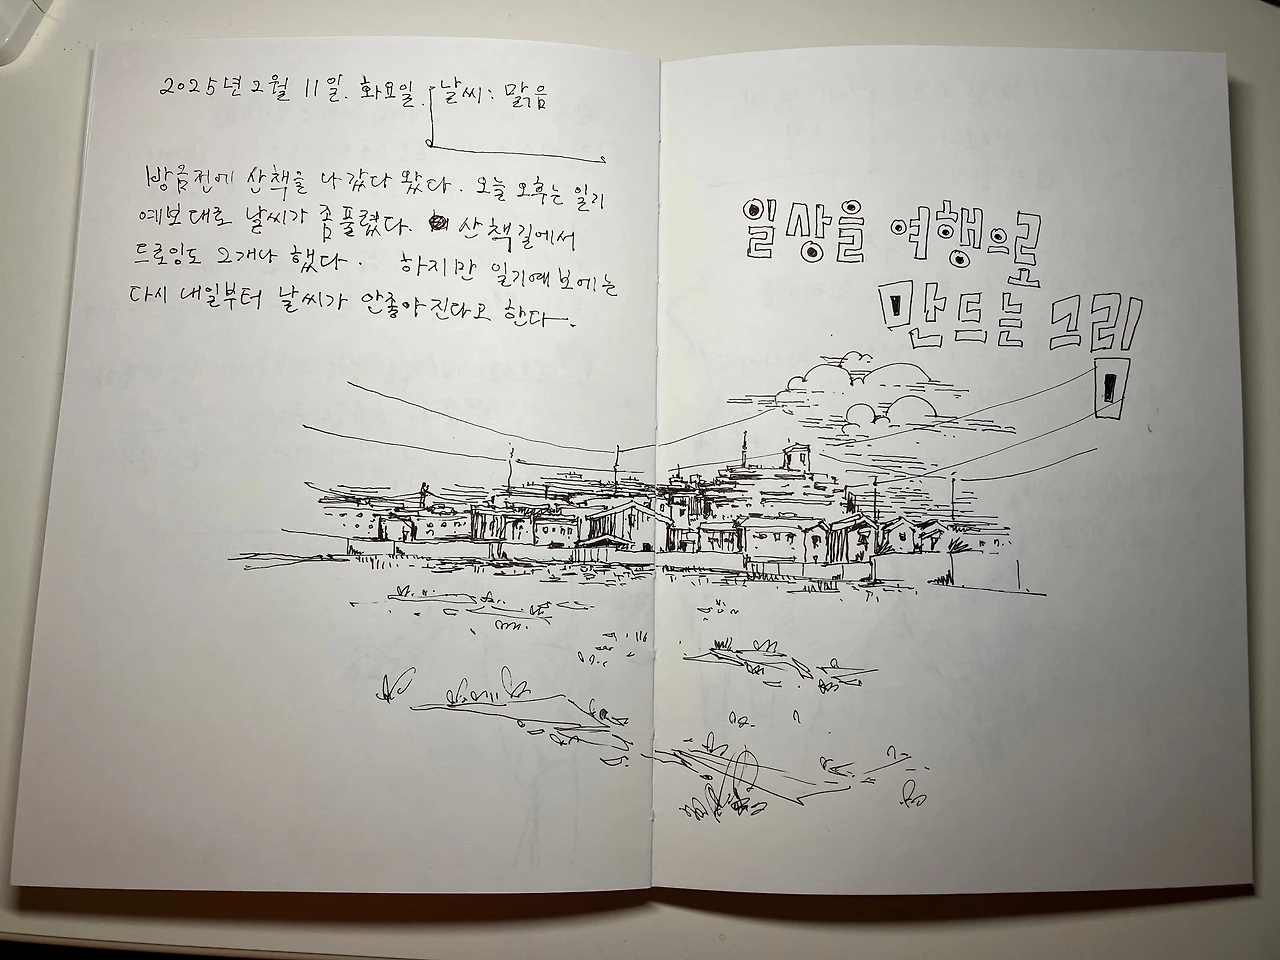 2025년 2월 11일. 화요일. 날씨: 맑음
방금전에 산책을 나갔다 왔다. 오늘 오후는 일기
예보대로 날씨가 좀 풀렸다. 산책길에서
드로잉도 2개나 했다. 하지만 일기예보에는
다시 내일부터 날씨가 안좋아진다고 한다.
일상을 여행으로
만드는 그림